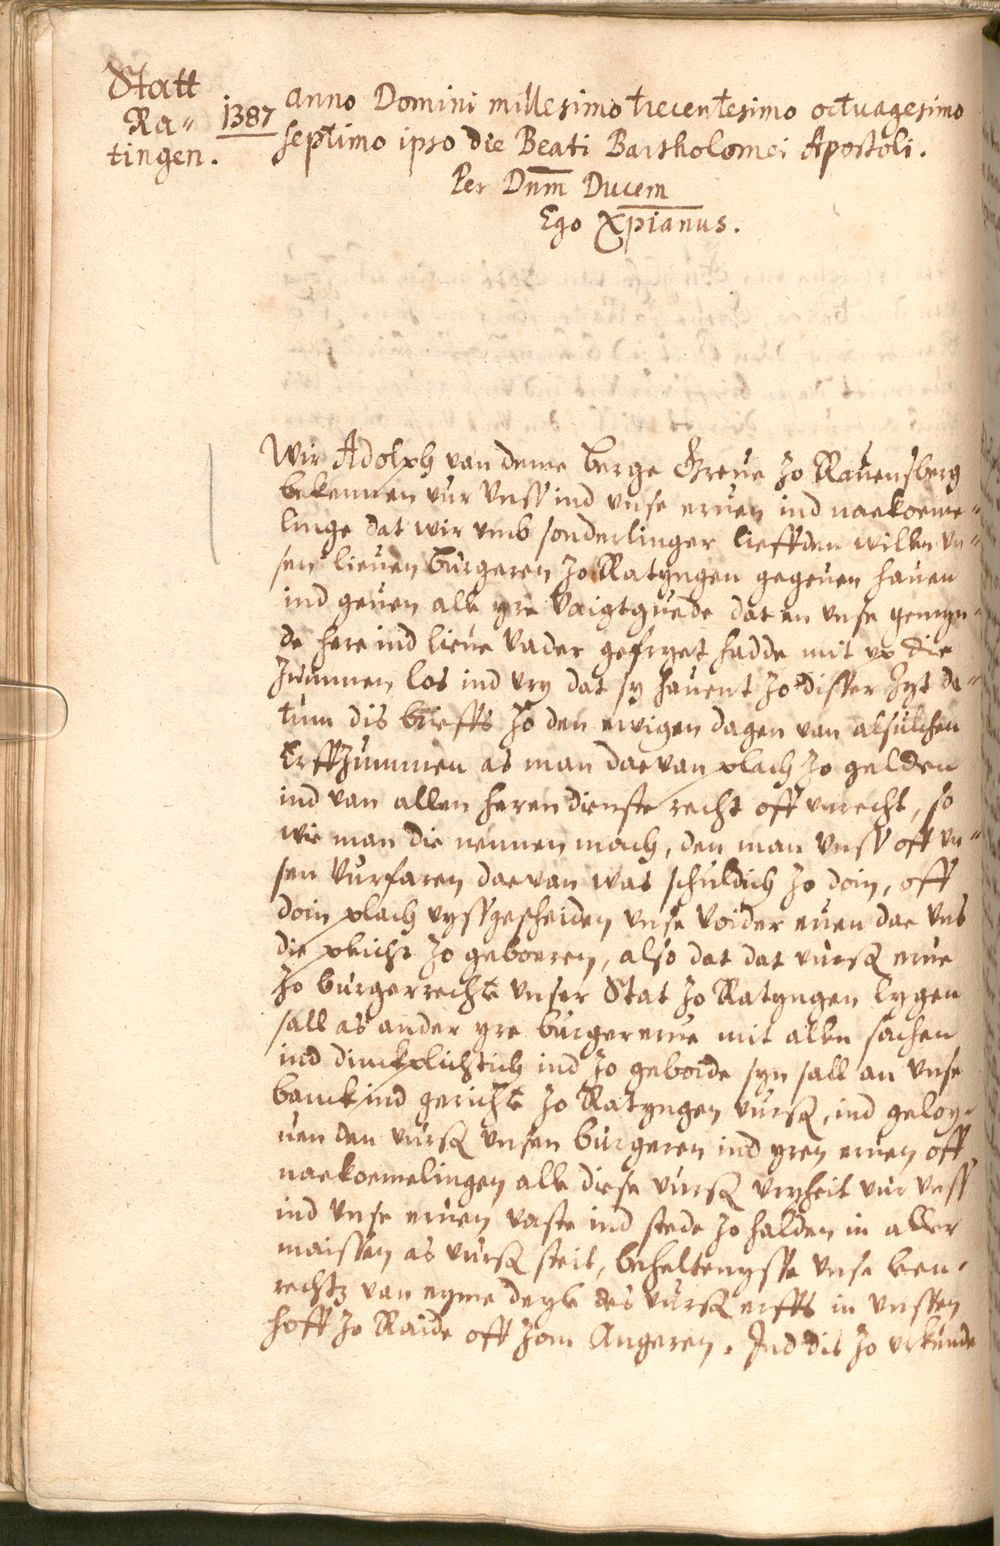 Statt
Ra-
tingen.
1387
anno Domini millesimo trecentesimo octuagesimo
septimo ipso die Beati Bartholomei Apostoli.
Per Dnm Ducem
Ego Xpianus.
Wir Adolph van deme Berge Greue zo Rauensberg
bekennen vur vnss ind vnse eruen ind naekoeme-
linge dat wir vmb sonderlinger lieffden willen vn-
sen lieuen burgeren zo Ratyngen gegeuen hauen
ind geuen alle yre vaigtguede dat en vnse gemyn-
de here ind lieue vader gefryet hadde mit vp die
zunnen los ind vry dat sy hauent zo disser zyt da-
tum dis brieffs zo den ewigen dagen van alsulchen
Erffzinnmen as man dae van plach zo gelden
ind van allen heren dienste recht off vnrecht, so
wie man die nennen mach, den man vnss off vn-
sen vurfaren dae van was schuldich zo doin, off
doin plach vyssgescheiden vnse voider euen dae vns
die plicht zo geboeren, also dat dat vursz erue
zo burgerrechte vnser Stat zo Ratyngen lygen
sall as ander yre burgererue mit allen sachen
ind dinckplichtich ind zo geboide syn sall an vnse
banck ind gerichte zo Ratyngen vursz, ind geloy-
uen den vursz vnsen burgeren ind yren eruen off
naekoemelingen alle diese vursz vryheit vur vnss
ind vnse eruen vaste ind stede zo halden in aller
maissen as vursz steit, beheltenysse vnse leen-
rechtz van eyme deyle des vursz erffs in vnssen
hoff zo Raide off zom Angeren. Ind dis zo vrkunde